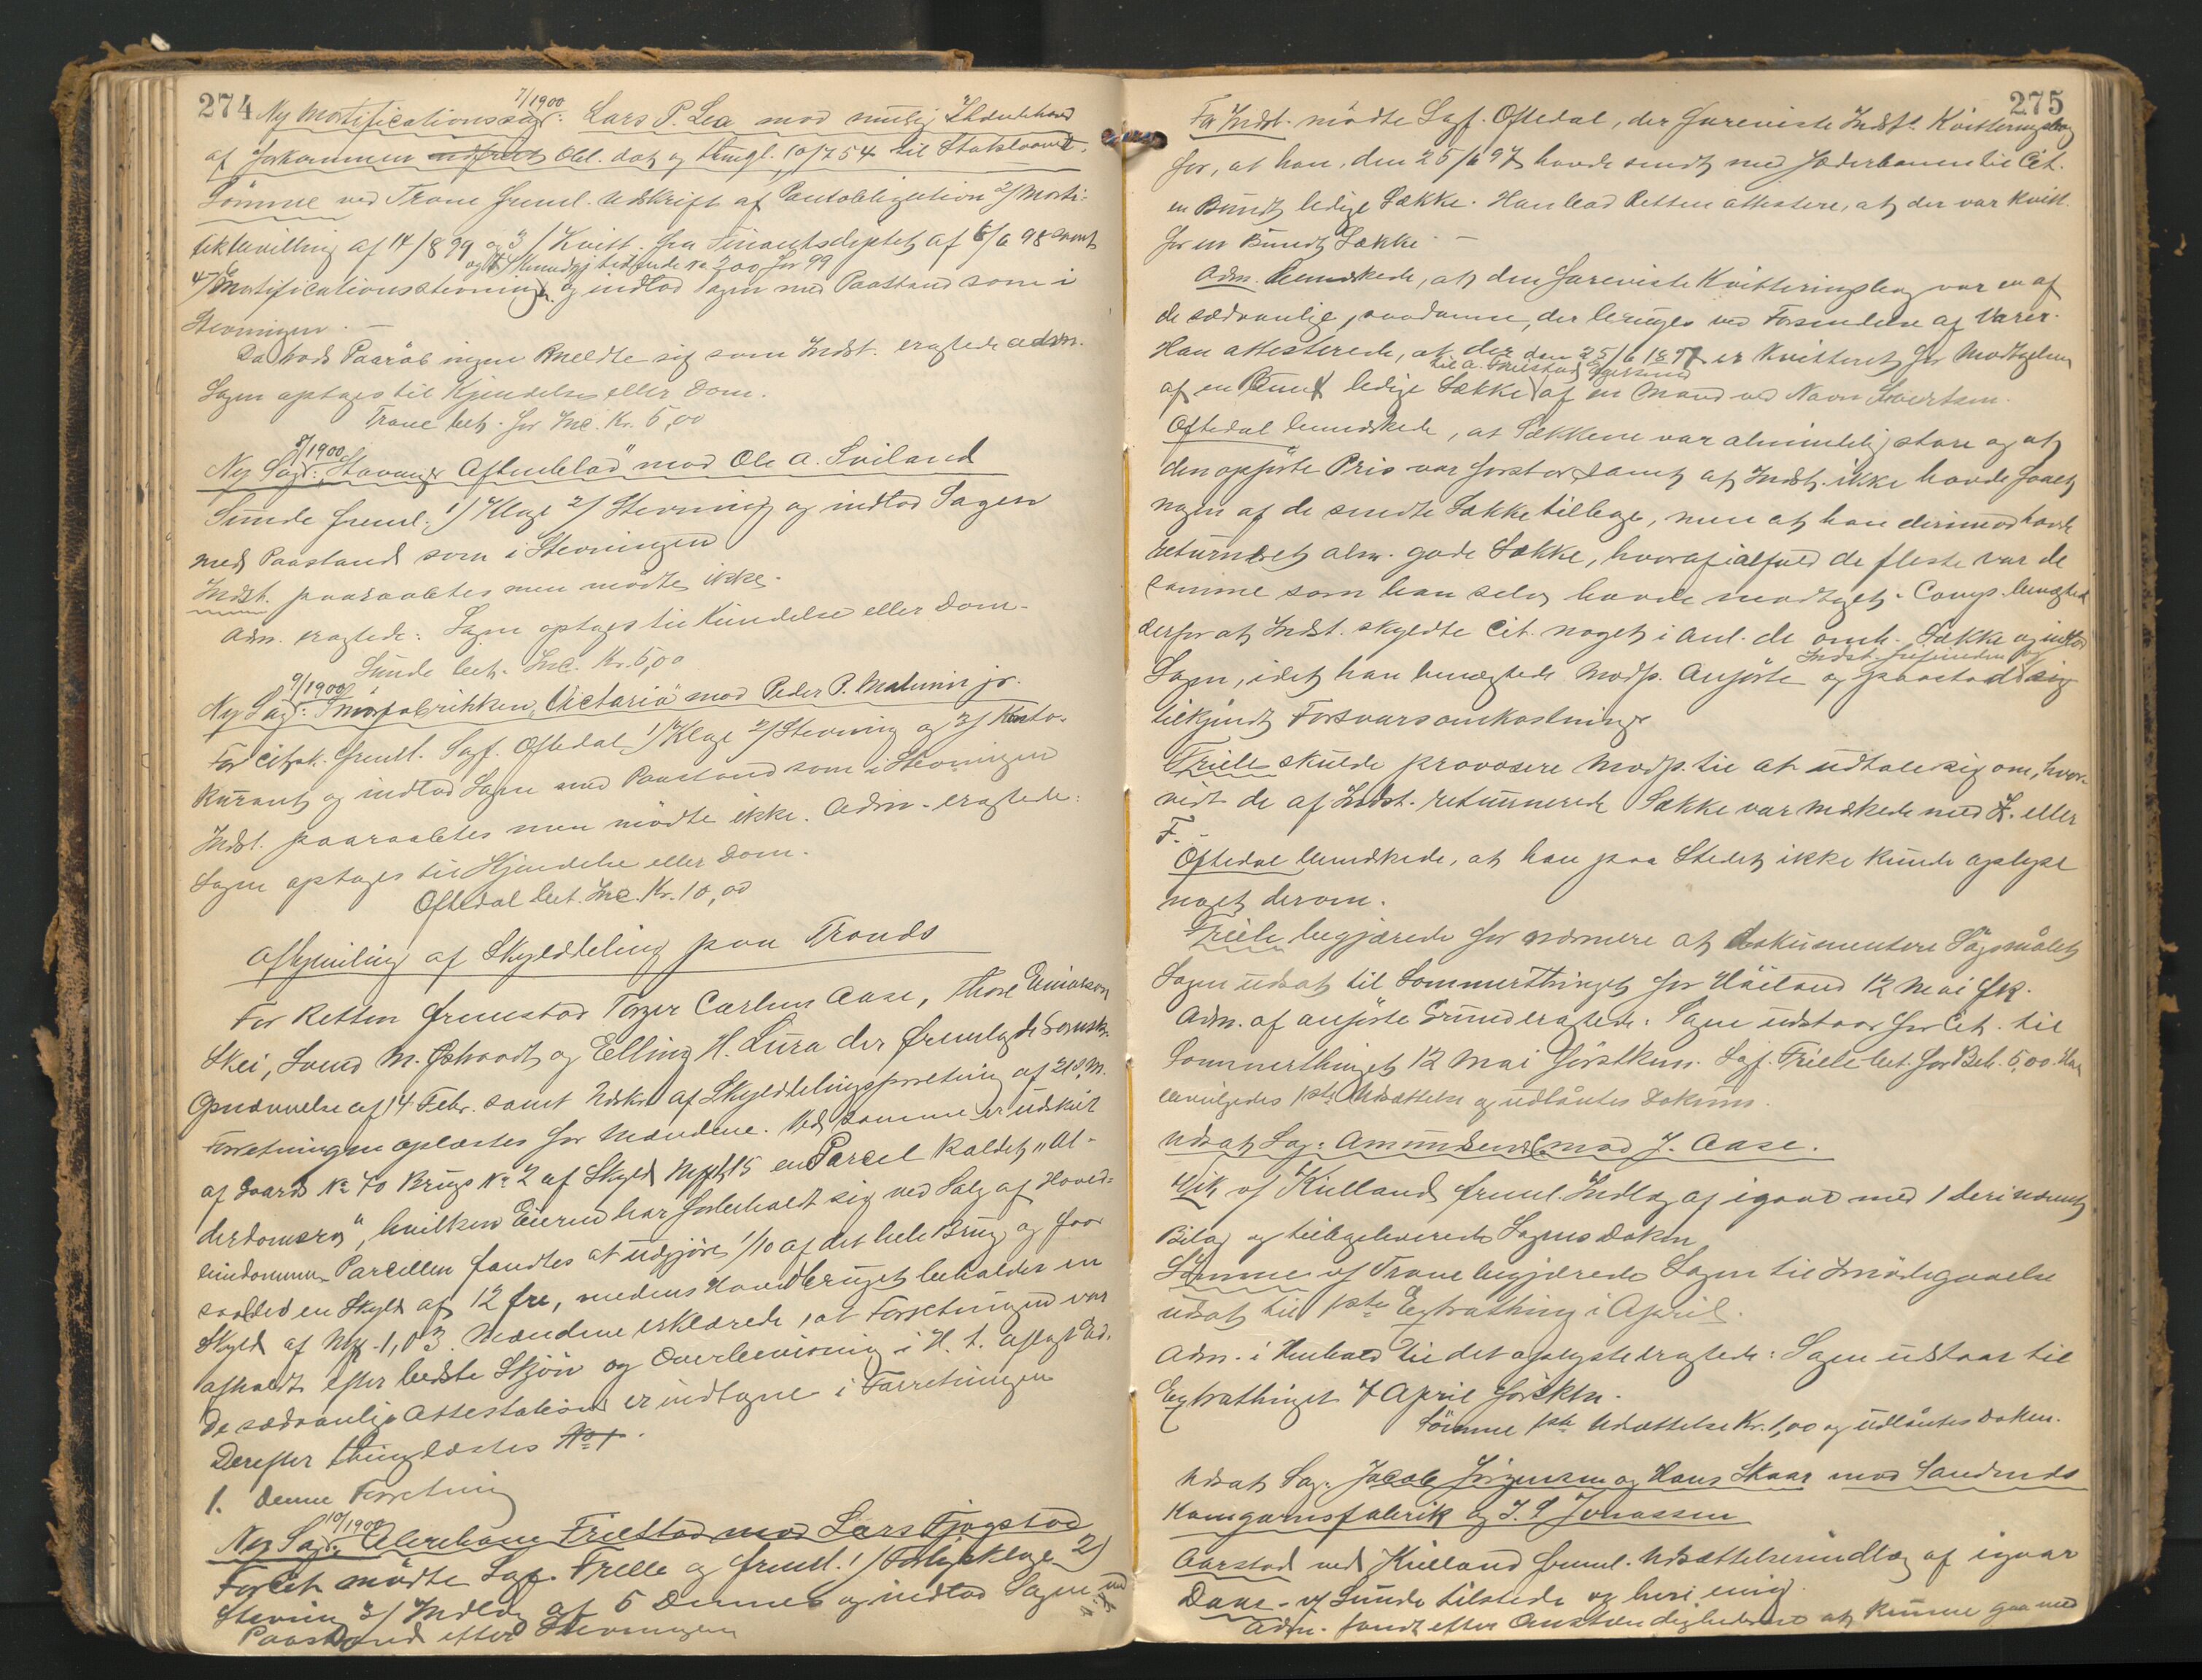 274 Ny Mortificationssag 7/1900: Lars P. Lea mod mulig Ihændehaver
af forkommen Obl. dat. og tingl. 10/7 54 til Statslaanet.
Sömme ved Trane freml. Udskrift af Pantobligation 2/ Morti-
fikbevilling af 14/8 99 og 3/ Kvitt. fra Finantsdeptet af 6/6 98 samt
og Kundgj tidende No 200 for 99
4/ Mortificationsstevning og indlod Sagen med Paastand som i
Stevningen. —
Da trods Paaråb ingen meldte sig som Indst. eragtede Adm.
Sagen optages til Kjendelse eller Dom.
Trane bet. for Inc. Kr. 5,00
Ny Sag 8/1900: "Stavanger Aftenblad" mod Ole A. Sviland
Sunde freml. 1/ Klage 2/ Stevning og indlod Sagen
med Paastand som i Stevningen
Indst. paaraabtes men mödte ikke.
Adm. eragtede: Sagen optages til Kiendelse eller Dom.
Sunde bet. Inc. Kr. 5,00
Ny Sag 9/1900: Smörfabrikken "Victoria" mod Peder P. Malmin jr.
For Cit. freml. Sagf. Oftedal 1/ Klage 2/ Stevning og 3/ Konto-
kurant og indlod Sagen med Paastand som i Stevningen
Indst. paaraabtes men mödte ikke. Adm. eragtede:
Sagen optages til Kjendelse eller Dom.
Oftedal bet. Inc. Kr. 10,00
Afhjemling af Skylddeling paa Tronds
For Retten fremstod Torger Carlsen Aase, Thore Einarson
Skei, Svend M. og Elling H. Lura der fremlagde Lensm.
Opnævnelse af 14 Febr. samt Udskr. af Skylddelingsforretning af
Forretningen oplæstes for Mændene. Ved samme er udskilt
af Gaards No 70 Brugs No 2 af Skyld Mrk 1,15 en Parcel kaldet "Al-
derdomsro", hvilken Eieren har forbeholdt sig ved Salg af Hoved-
eindommen. Parcellen fandtes at udgjöre 1/10 af det hele Brug og faar
saaledes en Skyld af 12 Øre, medens Hovedbruget beholder en
Skyld af Mrk. 1,03. Mændene erklærede, at Forretningen var
afholdt efter bedste Skjön og Overbevisning i H. t. aflagt Ed.
De sædvanlige Attestationer er indtagne i Forretningen
Derefter thinglæstes No 1
1. denne Forretning
Ny Sag 10/1900: Abraham Friestad mod Lars Fjogstad
For Cit. mödte Sagf. Trelle og freml. 1/ Forligsklage 2)
Stevning 3/ Indlæg af 5 Dennes og indlod Sagen med
Paastand efter Stevningen
275
For Indst. mödte Sagf. Oftedal, der foreviste Indst. Kvitteringsbog
for, at han, den 25/6 97 havde sendt med Jæderbanen til Cit.
en Bundt ledige Sække. Han bad Retten attestere, at der var kvitt.
for en Bundt Sække. —
Adm. bemærkede, at den foreviste Kvitteringsbog var en af
de sædvanlige, saadanne, der bruges ved Forsendelse af Varer.
Han attesterede, at der den 25/6 1897 er kvitteret for Modtagelsen
til A. Friestad Egersund
af en Bundt ledige Sække af en Mand ved Navn Sivertsen.
Oftedal bemærkede, at Sækkene var almindelig store og at
den opförte Pris var for stor, samt at Indst. ikke havde faaet
nogen af de sendte Sække tilbage, men at han derimod havde
returneret alm. gode Sække, hvoraf ialfald de fleste var de
samme som han selv havde modtaget. Comp. benægted
derfor at Indst. skyldte Cit. noget i Anl. de omh. Sække og indlod
Indst. frifunden og
Sagen, idet han benægtede Modp. Anförte og paastod sig
tilkjendt Forsvarsomkostninger
Trelle skulde provosere Modp. til at udtale sig om, hvor-
vidt de af Indst. returnerede Sække var mærkede med L. eller
F.
Oftedal bemærkede, at han paa Stedet ikke kunde oplyse
noget derom.
Trelle begjærede for nærmere at dokumentere Sögsmålet
Sagen udsat til Sommerthinget for Håland 12 Mai fk.
Adm. af anförte Grund eragtede: Sagen udstaar for Cit. til
Sommerthinget 12 Mai förstkom. Sagf. Trelle bet. for Beh. 5,00. Han
bevilgedes 1ste Udsættelse og udlåntes Dokum.
Udsat Sag: Amundsen mod J. Aase.
Vik v/ Kielland freml. Indlæg af igaar med 1 deri nævnt
Bilag og tilbageleverede Sagens Dokm.
Sömme v/ Trane begjærede Sagen til Imödegaaelse
udsat til 1ste Extrathing i April.
Adm. i Henhold til det oplyste eragtede: Sagen udstaar til
Extrathinget 7 April förstk.
Sömme 1ste Udsættelse Kr. 1,00 og udlåntes Dokm.
Udsat Sag: Jacob Jörgensen og Hans Skaar mod Sandnæs
Kamgarnsfabrik og J. S. Jonassen
Aarstad ved Kielland freml. Udsættelsesindlæg af igaar
Dane v/ Sunde tilstede og heri enig.
Adm. fandt efter Omstændighederne at kunne gaa med